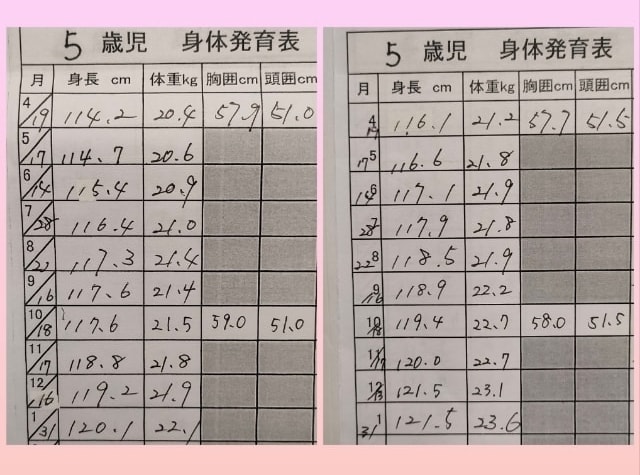 5 歳児 身体発育表
月 身長 cm 体重kg 胸囲cm 頭囲cm
4/19 114.2 20.4 57.9 51.0
5/17 114.7 20.6
6/14 115.4 20.9
7/28 116.4 21.0
8/22 117.3 21.4
9/16 117.6 21.4
10/18 117.6 21.5 59.0 51.0
11/17 118.8 21.8
12/16 119.2 21.9
1/31 120.1 22.1
5 歳児 身体発育表
月 身長 cm 体重kg 胸囲cm 頭囲cm
4/19 116.1 21.2 57.7 51.5
17 5 116.6 21.8
14 6 117.1 21.9
28 7 117.9 21.8
22 8 118.5 21.9
9/16 118.9 22.2
10/18 119.4 22.7 58.0 51.5
11/17 120.0 22.7
12/13 121.5 23.1
31 1 121.5 23.6